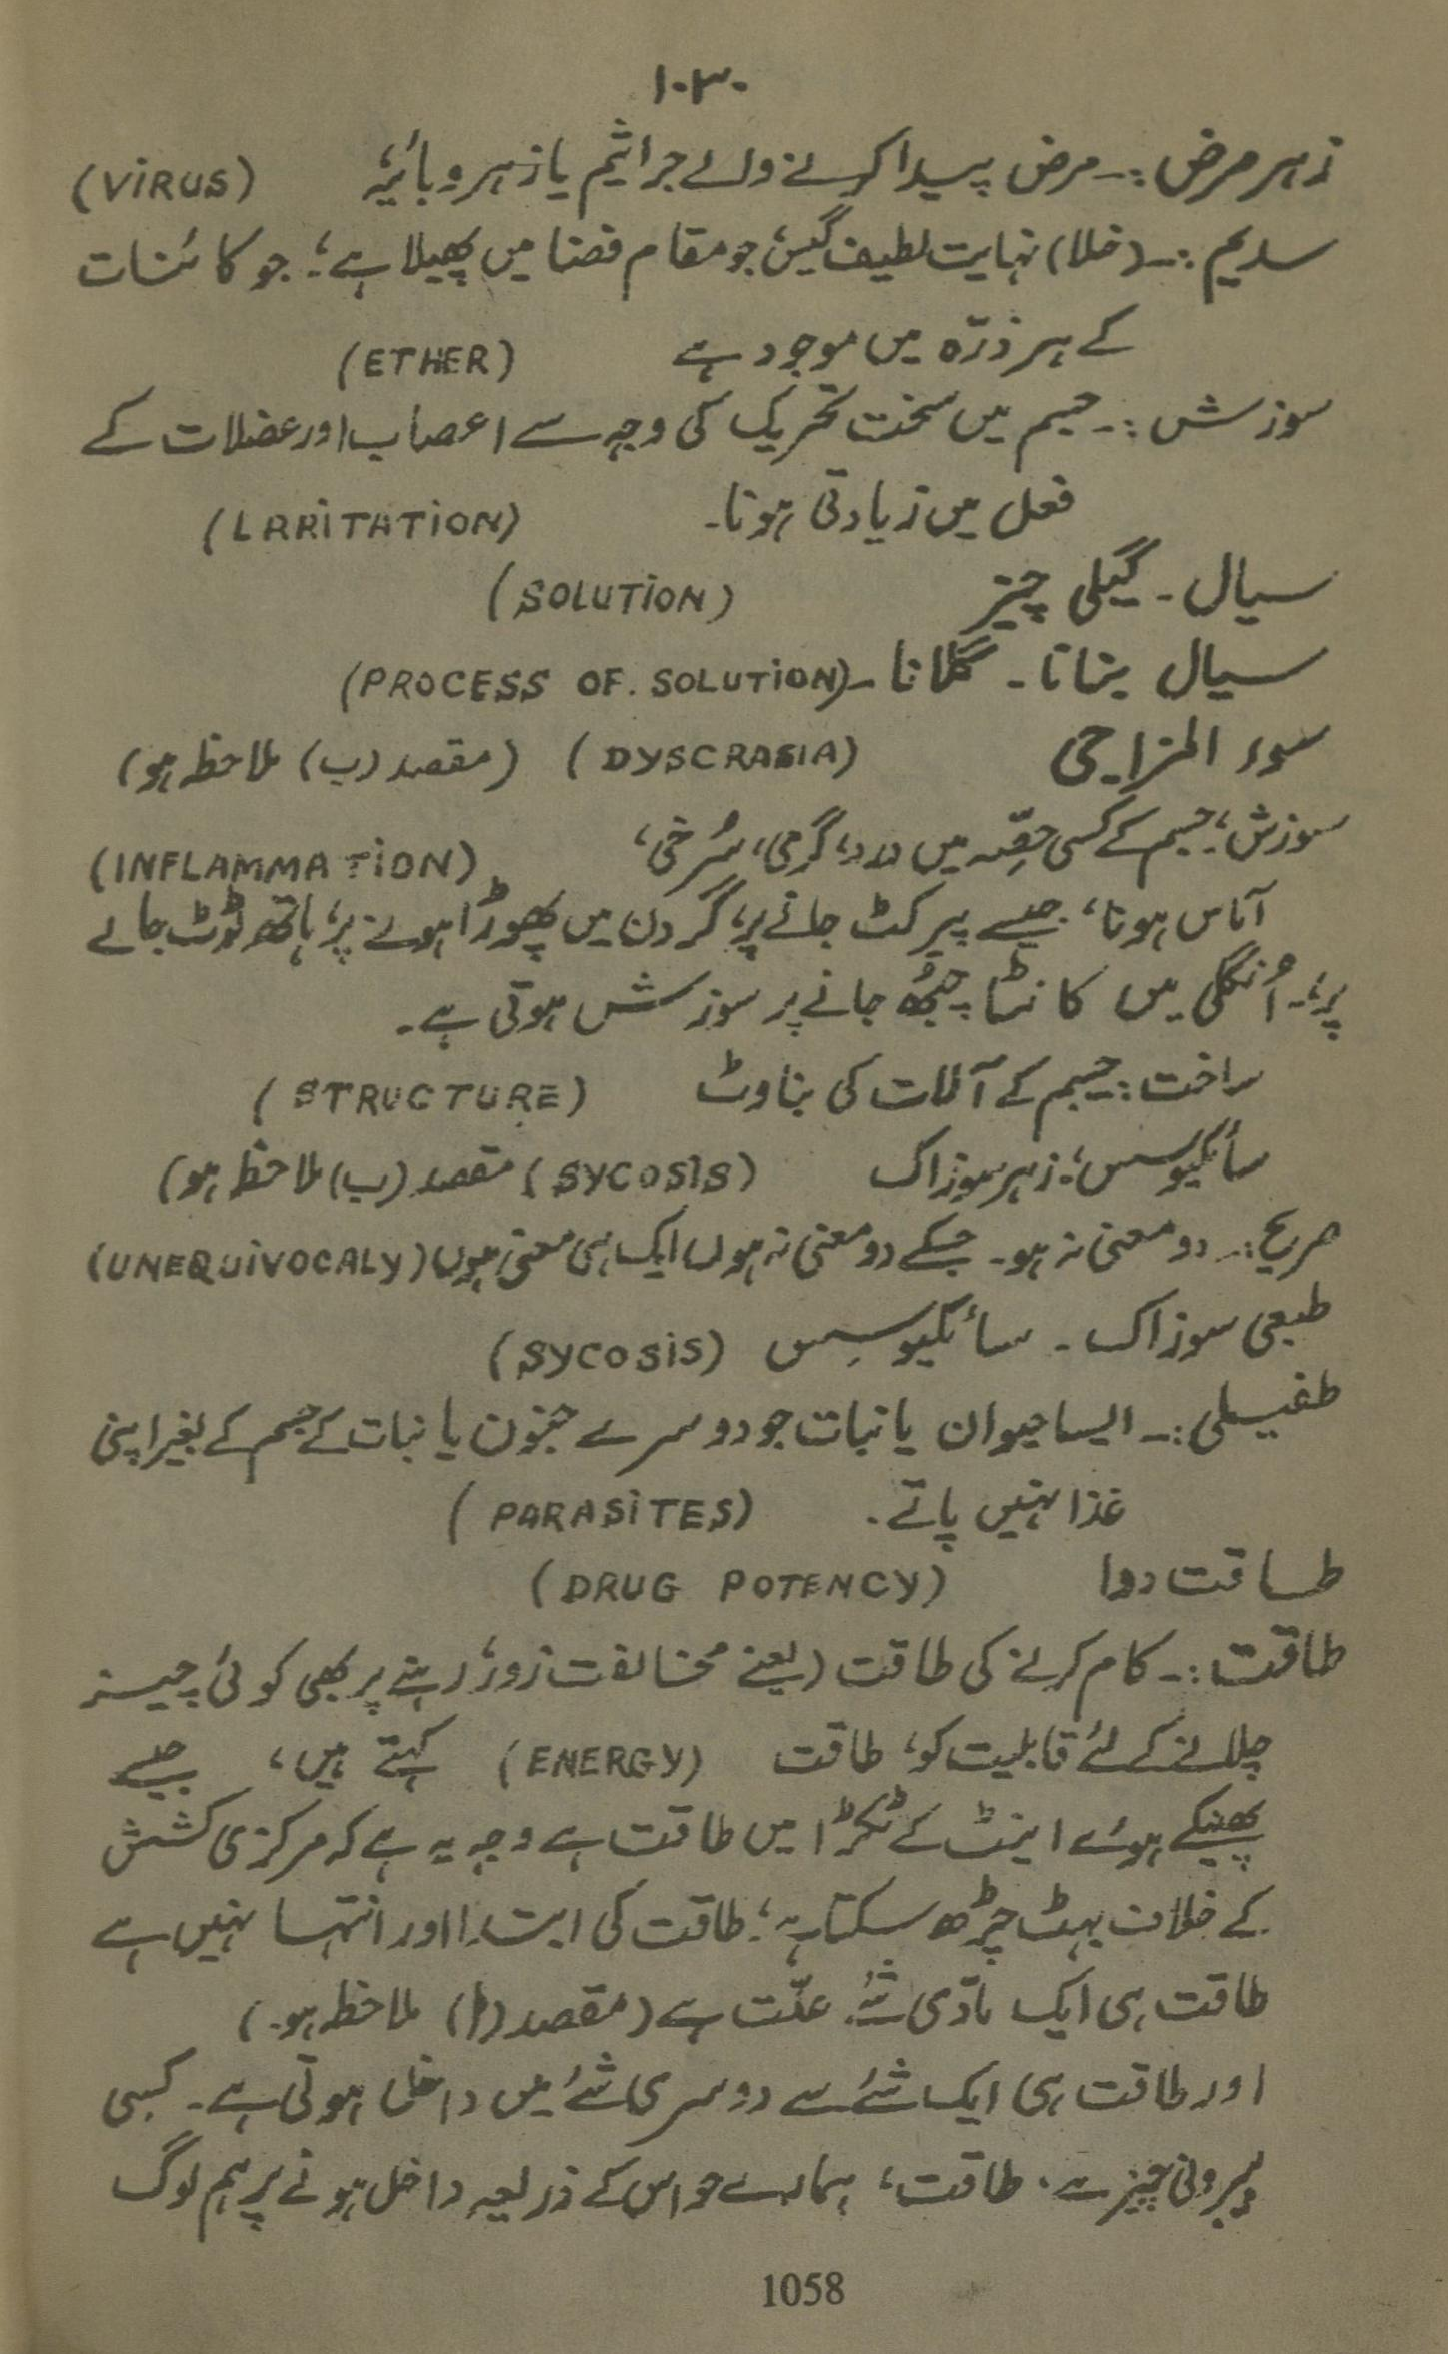 ۱۰۳۰
زہر مرض :۔ مرض پیدا کرنے والے جراثیم یا زہر وبائیہ (VIRUS)
سدیم :۔ (خلا) نہایت لطیف گیس، جو مقام فضا میں پھیلا ہے؛ جو کائنات
کے ہر ذرّہ میں موجود ہے (ETHER)
سوزش :۔ جسم میں سخت تحریک کی وجہ سے اعصاب اور عضلات کے
فعل میں زیادتی ہونا۔ (LRRITATION)
سیال ۔ گیلی چیز (SOLUTION)
سیال بنانا ۔ گلانا ۔ (PROCESS OF. SOLUTION)
سوء المزاجی (DYSCRASIA) (مقصد (ب) ملاحظہ ہو)
سوزش؛ جسم کے کسی حصّہ میں درد، گرمی، سُرخی، (INFLAMMATION)
آماس ہونا، جیسے پیر کٹ جانے پر، گردن میں پھوڑا ہونے پر، ہاتھ ٹوٹ جانے
پر، ۔ اُنگلی میں کانٹا چبھ جانے پر سوزش ہوتی ہے ۔
ساخت : جسم کے آلات کی بناوٹ (STRUCTURE)
سائکیوسس؛ زہر سوزاک (SYCOSIS) مقصد (ب) ملاحظہ ہو)
صریح :۔ دو معنی نہ ہو ۔ جسکے دو معنی نہ ہوں ایک ہی معنی ہوں (UNEQUIVOCALY)
طبعی سوزاک ۔ سائکیوسِس (SYCOSIS)
طفیلی :۔ ایسا حیوان یا نبات جو دوسرے حیون یا نبات کے جسم کے بغیر اپنی
غذا نہیں پاتے ۔ (PARASITES)
طاقت دوا (DRUG POTENCY)
طاقت :۔ کام کرنے کی طاقت (یعنے مخالفت زور، رہنے پر بھی کوئی چیز
چلانے کے لئے قابلیت کو، طاقت (ENERGY) کہتے ہیں، جیسے
پھینکے ہوئے اینٹ کے ٹکڑا میں طاقت ہے وجہ یہ ہے کہ مرکزی کشش
کے خلاف پہٹ چڑھ سکتا ہے؛ طاقت کی ابتدا اور انتہا نہیں ہے
طاقت ہی ایک مادّی شئے علّت ہے (مقصد (ا) ملاحظہ ہو۔)
اور طاقت ہی ایک شئے سے دوسری شئے میں داخل ہوتی ہے ۔ کسی
بیرونی چیز سے ۔ طاقت، ہمارے حواس کے ذریعہ داخل ہونے پر ہم لوگ
1058